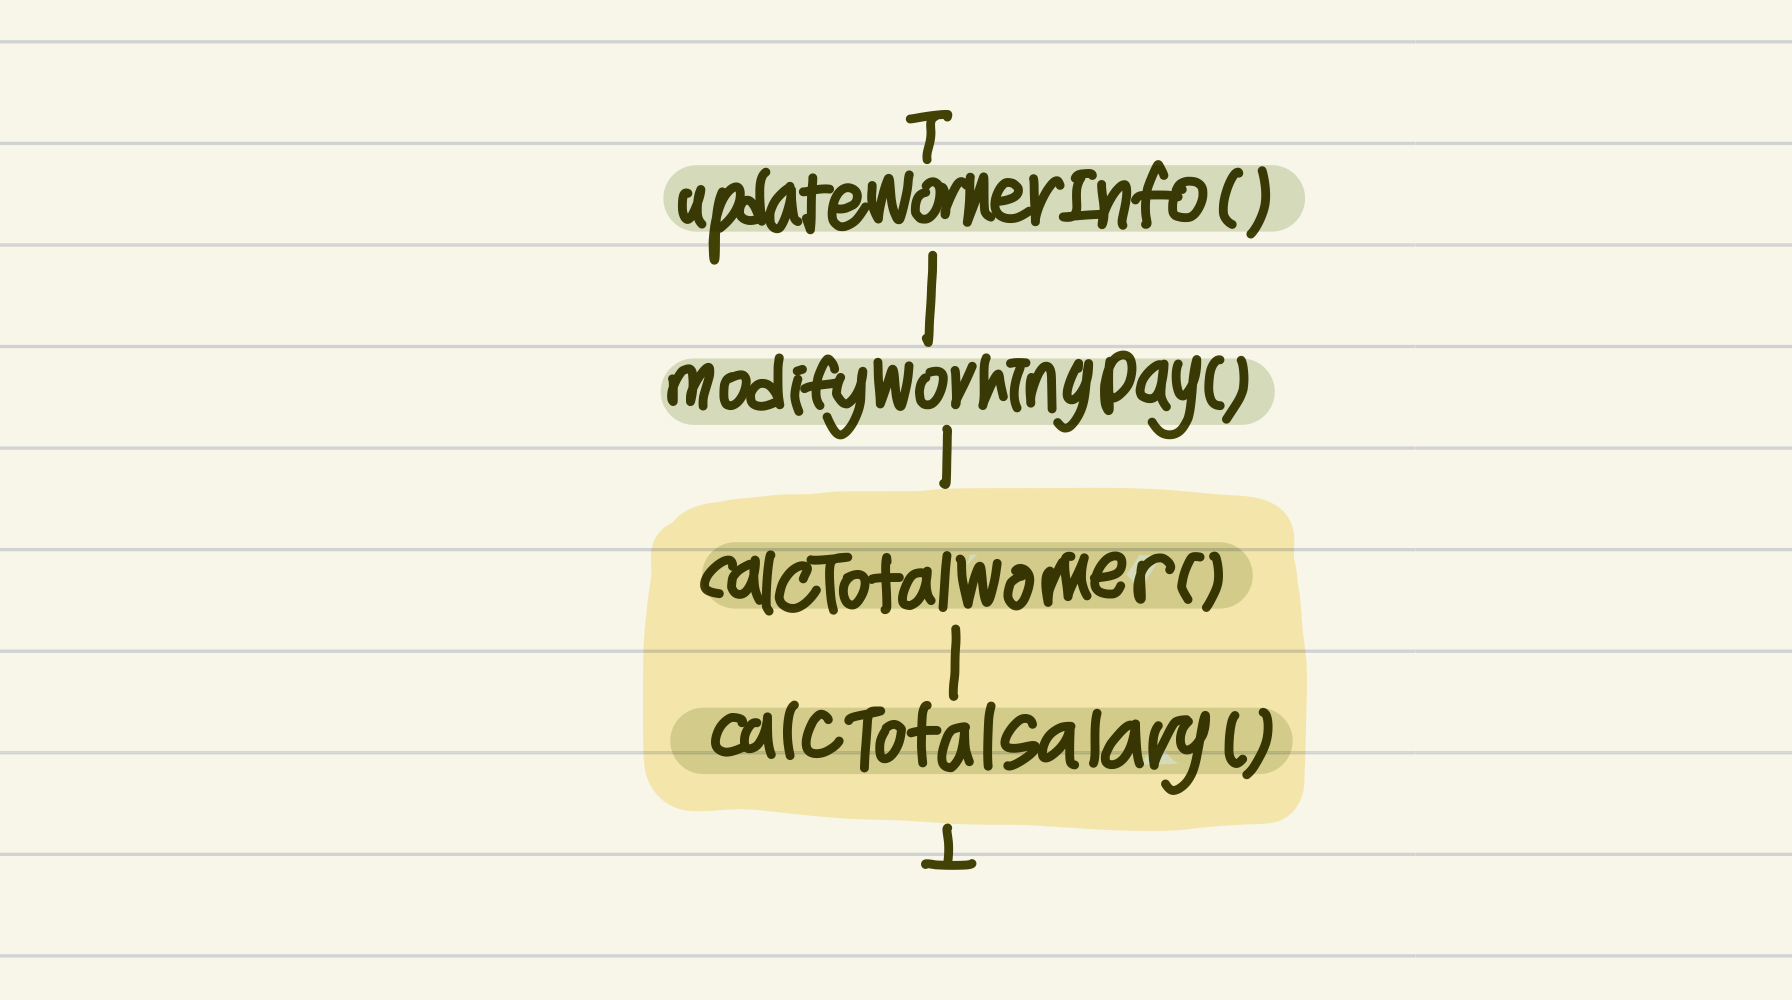 updateWorkerInfo()
modifyWorkingDay()
calcTotalWorker()
calcTotalSalary()